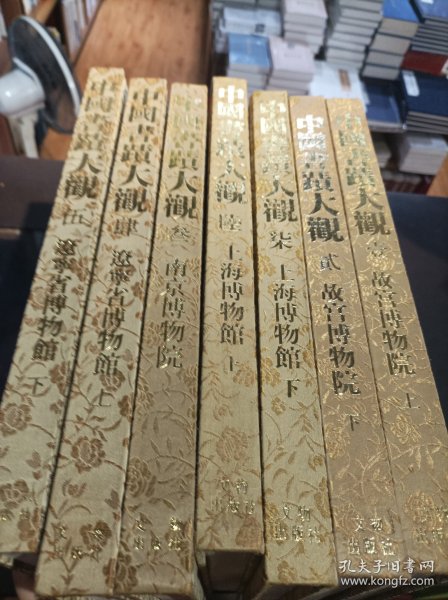 中國書蹟大觀 伍 遼寧省博物館 下
中國書蹟大觀 肆 遼寧省博物館 上
文物
中國書蹟大觀 叁 南京博物院
出版社
中國書蹟大觀 陸 上海博物館 上
文物
出版社
中國書蹟大觀 柒 上海博物館 下
文物
出版社
中國書蹟大觀 貳 故宮博物院 下
文物
出版社
中國書蹟大觀 壹 故宮博物院 上
孔夫子旧书网
www.kongfz.com